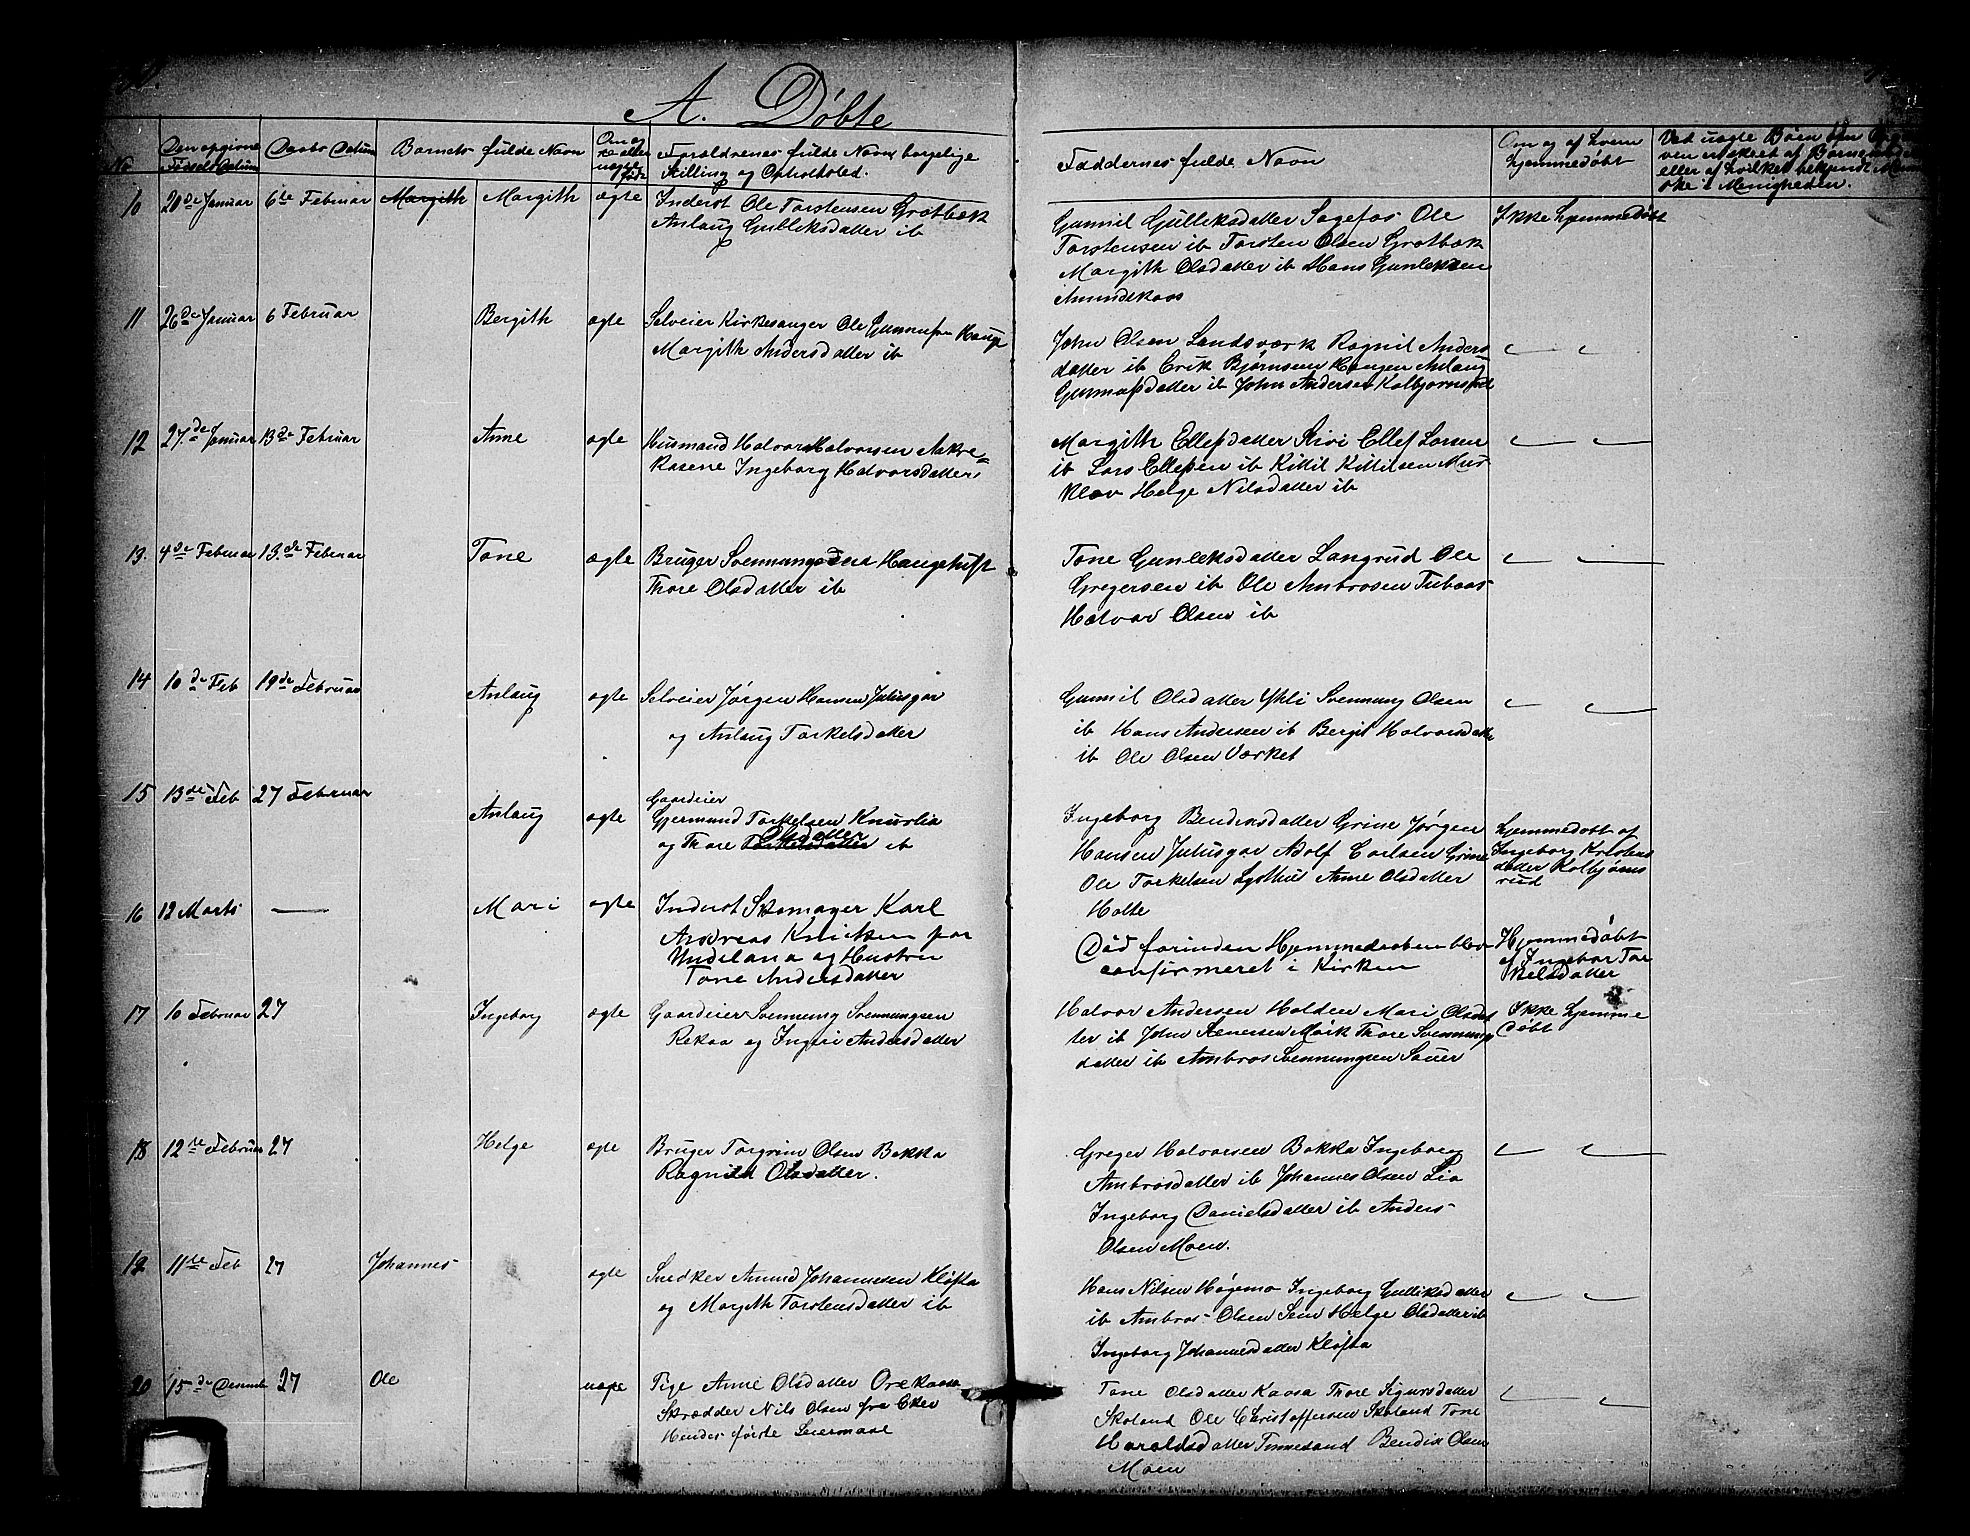 A. Døbte
No
Den opgivne Fødsels Datum
Daabs Datum
Barnets fulde Navn
Om egte eller uegte født
Forældrenes fulde Navn borgelige
Stilling og Opholdsted.
Faddernes fulde Navn
Om og af hvem
hjemmedøbt
Ved uegte Børn
eller af hvilket bekjendt
i Menigheden.
10 20de Januar 6te Februar Margith Margith ægte Inderst Ole Torstensen Grotbæk
Anlaug Gulleksdatter ib
Gunnil Gulleksdatter Sagefos Ole Ikke hjemmedøbt
Torstensen ib Torsten Olsen Grotbæk
Margith Olsdatter ib Hans Gunleksen
Amundskaas
11 26de Januar 6 Februar Bergith ægte Selveier Kirkesanger Ole Gunnufsen Hauge
Margith Andersdatter ib
John Olsen Landsværk Ragnil Anders
datter ib Erik Bjørnsen Haugen Anlaug
Gunnufsdatter ib John Andersen Kolbjørnsrud
12 27de Januar 13de Februar Anne ægte Husmand Halvor Halvorsen Aakre=
Rasene Ingeborg Halvorsdatter
Margith Ellefsdatter Skivi Ellef Larsen
ib Lars Ellefsen ib Kittil Kittilsen Mus
klev Helge Nilsdatter ib
13. 4de Februar 13.de Februar Tone ægte Bruger Svennung Haugetuft
Thore Olsdatter ib
Tone Gunleksdatter Langrud Ole
Gregersen ib Ole Ambrosen Tubaas
Halvor Olsen ib
14 10de Feb 19de Februar Anlaug ægte Selveier Jørgen Hansen Juliusgar
og Anlaug Torkelsdatter
Gunnil Olsdatter Ykli Svennung Olsen
ib Hans Andersen ib Bergit Halvorsdatter
ib Ole Olsen Værket
15 13de Feb 27 Februar Anlaug ægte Gaardeier
Gjermund Torkelsen Knurlia
og Thore Torkelsdatter Olsdatter ib
Ingeborg Bendixsdatter Grine Jørgen
Hansen Juliusgar Adolf Carlsen Grine
Ole Torkelsen Lysthus Anne Olsdatter
Holte
hjemmedøbt af
Ingeborg Kristens
datter Kolbjørns
rud
16 12 Marts — Mari ægte Inderst Skomager Karl
Andreas Knicken paa
Undeland og Hustru
Tone Andersdatter
Død forinden Hjemmedaaben blev
confirmeret i Kirken
Hjemmedøbt
af Ingebor Tor
kelsdatter
17 10 Februar 27 Ingeborg ægte Gaardeier Svennung Svennungsen
Rekaa og Ingeri Andersdatter
Halvor Andersen Holden Mari Olsdat
ter ib John Mørk Thore Svennungs
datter ib Ambros Svennungsen Sauer
Ikke hjemme
døbt
18 12te Februar 27 Helge ægte Bruger Torgrim Olsen Bakka
Ragnild Olsdatter.
Greger Halvorsen Bakka Ingeborg
Ambrosdatter ib Johannes Olsen Lia
Ingeborg Danielsdatter ib Anders
Olsen Moen.
19 11te Feb 27 Johannes ægte Snedker Amund Johannesen Kløfta
og Margith Torstensdatter ib
Hans Nilsen Høgemo Ingeborg Gulliksdatter
ib Ambros Olsen Sem Helge Olsdatter ib
Ingeborg Johannesdatter Kløfta
20 15de 27 Ole uægte Pige Anne Olsdatter Orekaasa
Skrædder Nils Olsen fra Eker
Hendes første Leiermaal
Tone Olsdatter Kaasa Thore Sigursdatter
Skoland Ole Christoffersen Skoland Tone
Haraldsdatter Tinnesand Bendix Olsen
Moen